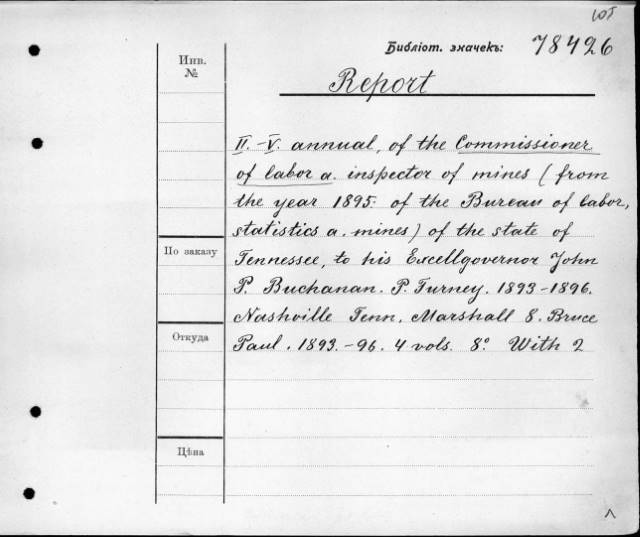 Библіот. значекъ: 78426
Report
Инв.
№
II.-V. annual, of the Commissioner
of labor a. inspector of mines (from
the year 1895. of the Bureau of labor,
statistics a. mines) of the state of
Tennessee, to his Excellgovernor John
P. Buchanan. P. Turney. 1893-1896.
Nashville Tenn. Marshall & Bruce
Paul. 1893.-96. 4 vols. 8° With 2
По заказу
Откуда
Цѣна